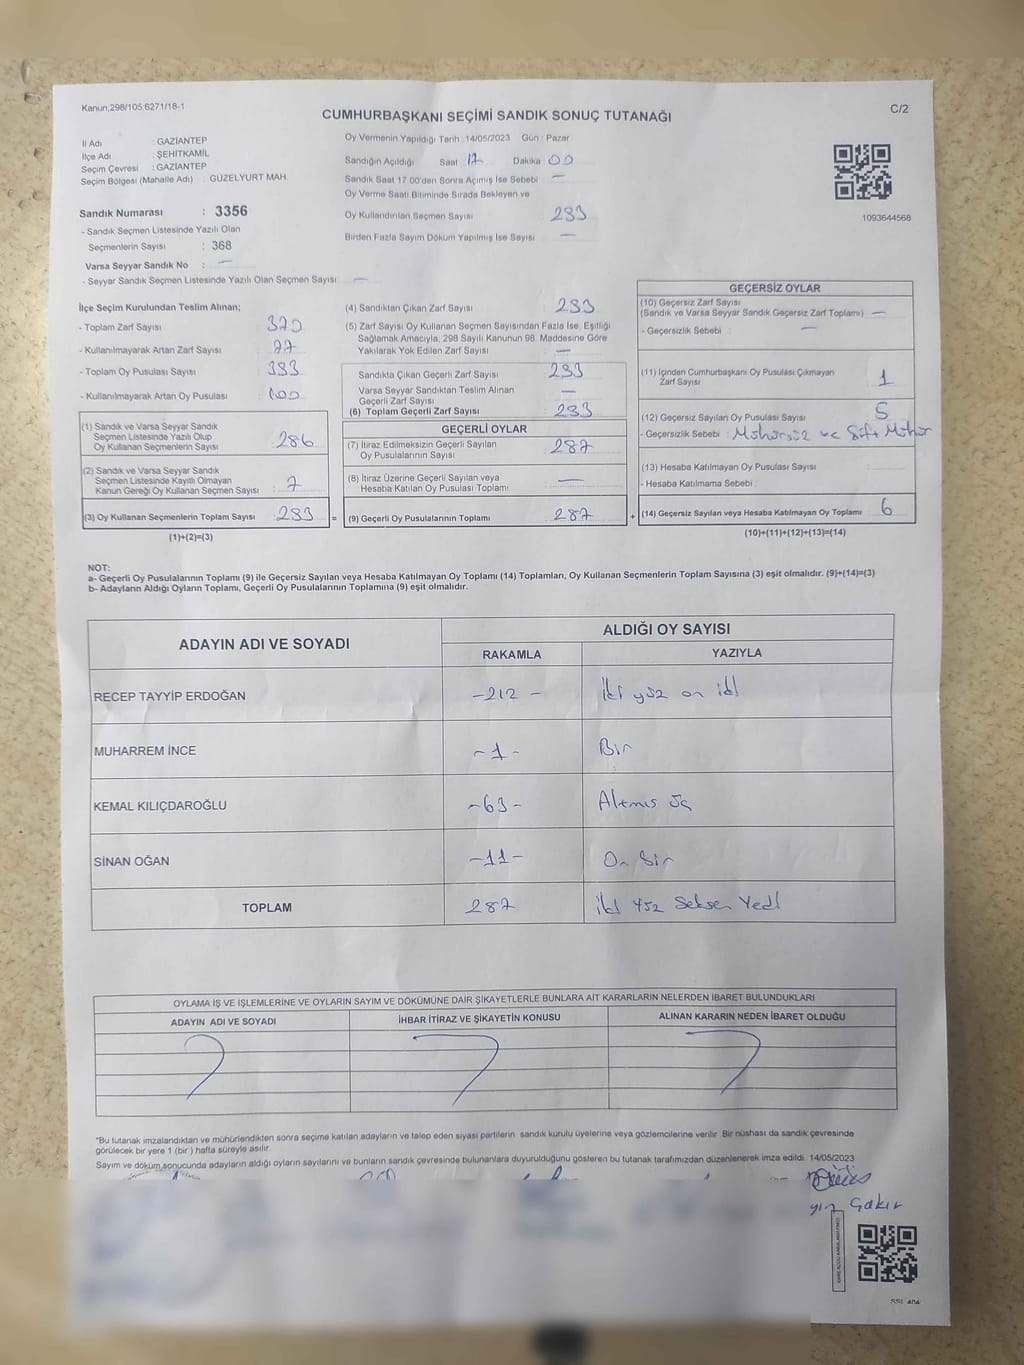 Kanun;298/105;6271/18-1
C/2
CUMHURBAŞKANI SEÇİMİ SANDIK SONUÇ TUTANAĞI
İl Adı : GAZİANTEP
İlçe Adı : ŞEHİTKAMİL
Seçim Çevresi : GAZİANTEP
Seçim Bölgesi (Mahalle Adı) : GÜZELYURT MAH.
Sandık Numarası : 3356
- Sandık Seçmen Listesinde Yazılı Olan
Seçmenlerin Sayısı : 368
Varsa Seyyar Sandık No : —
- Seyyar Sandık Seçmen Listesinde Yazılı Olan Seçmen Sayısı —
Oy Vermenin Yapıldığı Tarih :14/05/2023 Gün : Pazar
Sandığın Açıldığı Saat 17 Dakika 00
Sandık Saat 17.00'den Sonra Açımış İse Sebebi —
Oy Verme Saati Bitiminde Sırada Bekleyen ve
Oy Kullandırılan Seçmen Sayısı 293
Birden Fazla Sayım Döküm Yapılmış İse Sayısı —
1093644568
İlçe Seçim Kurulundan Teslim Alınan;
- Toplam Zarf Sayısı 370
- Kullanılmayarak Artan Zarf Sayısı 77
- Toplam Oy Pusulası Sayısı 393
- Kullanılmayarak Artan Oy Pusulası 100
(1) Sandık ve Varsa Seyyar Sandık
Seçmen Listesinde Yazılı Olup
Oy Kullanan Seçmenlerin Sayısı 286
(2) Sandık ve Varsa Seyyar Sandık
Seçmen Listesinde Kayıtlı Olmayan
Kanun Gereği Oy Kullanan Seçmen Sayısı 7
(3) Oy Kullanan Seçmenlerin Toplam Sayısı 293 =
(1)+(2)=(3)
(4) Sandıktan Çıkan Zarf Sayısı 293
(5) Zarf Sayısı Oy Kullanan Seçmen Sayısından Fazla İse, Eşitliği
Sağlamak Amacıyla, 298 Sayılı Kanunun 98. Maddesine Göre
Yakılarak Yok Edilen Zarf Sayısı —
Sandıkta Çıkan Geçerli Zarf Sayısı 293
Varsa Seyyar Sandıktan Teslim Alınan
Geçerli Zarf Sayısı —
(6) Toplam Geçerli Zarf Sayısı 293
GEÇERLİ OYLAR
(7) İtiraz Edilmeksizin Geçerli Sayılan
Oy Pusulalarının Sayısı 287
(8) İtiraz Üzerine Geçerli Sayılan veya
Hesaba Katılan Oy Pusulası Toplamı —
(9) Geçerli Oy Pusulalarının Toplamı 287 +
GEÇERSİZ OYLAR
(10) Geçersiz Zarf Sayısı
(Sandık ve Varsa Seyyar Sandık Geçersiz Zarf Toplamı) —
- Geçersizlik Sebebi : —
(11) İçinden Cumhurbaşkanı Oy Pusulası Çıkmayan
Zarf Sayısı 1
(12) Geçersiz Sayılan Oy Pusulası Sayısı 5
- Geçersizlik Sebebi : Mühürsüz ve Çift Mühür
(13) Hesaba Katılmayan Oy Pusulası Sayısı
- Hesaba Katılmama Sebebi :
(14) Geçersiz Sayılan veya Hesaba Katılmayan Oy Toplamı 6
(10)+(11)+(12)+(13)=(14)
NOT:
a- Geçerli Oy Pusulalarının Toplamı (9) ile Geçersiz Sayılan veya Hesaba Katılmayan Oy Toplamı (14) Toplamları, Oy Kullanan Seçmenlerin Toplam Sayısına (3) eşit olmalıdır. (9)+(14)=(3)
b- Adayların Aldığı Oyların Toplamı, Geçerli Oy Pusulalarının Toplamına (9) eşit olmalıdır.
ADAYIN ADI VE SOYADI
ALDIĞI OY SAYISI
RAKAMLA YAZIYLA
RECEP TAYYİP ERDOĞAN -212- İki yüz on iki
MUHARREM İNCE -1- Bir
KEMAL KILIÇDAROĞLU -63- Altmış üç
SİNAN OĞAN -11- On Bir
TOPLAM 287 İki yüz Seksen Yedi
OYLAMA İŞ VE İŞLEMLERİNE VE OYLARIN SAYIM VE DÖKÜMÜNE DAİR ŞİKAYETLERLE BUNLARA AİT KARARLARIN NELERDEN İBARET BULUNDUKLARI
ADAYIN ADI VE SOYADI İHBAR İTİRAZ VE ŞİKAYETİN KONUSU ALINAN KARARIN NEDEN İBARET OLDUĞU
*Bu tutanak imzalandıktan ve mühürlendikten sonra seçime katılan adayların ve talep eden siyasi partilerin sandık kurulu üyelerine veya gözlemcilerine verilir. Bir nüshası da sandık çevresinde
görülecek bir yere 1 (bir) hafta süreyle asılır.
Sayım ve döküm sonucunda adayların aldığı oyların sayılarını ve bunların sandık çevresinde bulunanlara duyurulduğunu gösteren bu tutanak tarafımızdan düzenlenerek imza edildi. 14/05/2023
Çakır